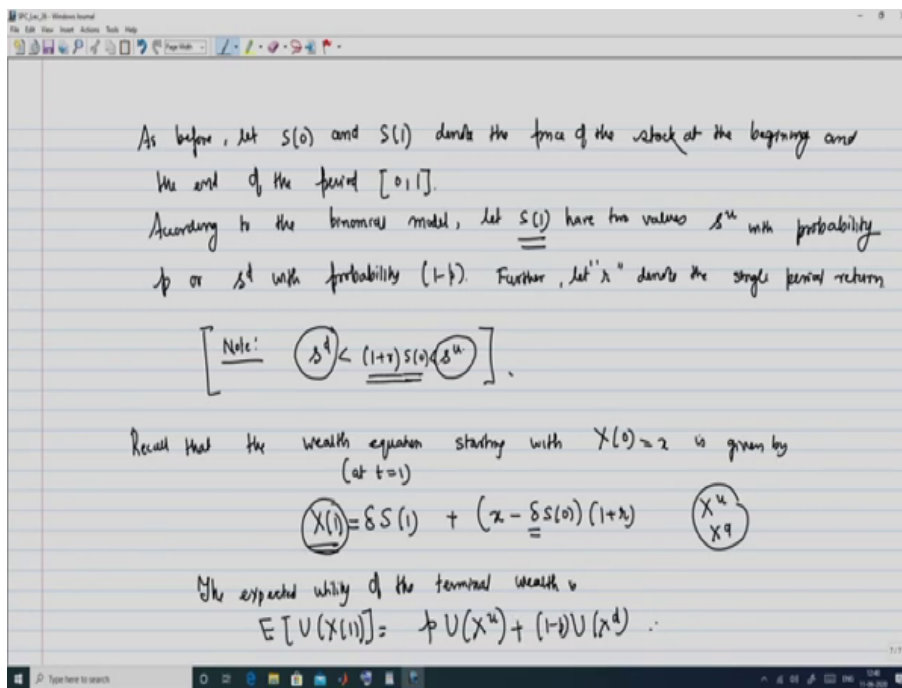 SPC_Lec_26 - Windows Journal
File Edit View Insert Actions Tools Help
Page Width
As before, let S(0) and S(1) denote the price of the stock at the beginning and
the end of the period [0,1].
According to the binomial model, let S(1) have two values s^u with probability
p or s^d with probability (1-p). Further, let "r" denote the single period return
[Note: s^d < (1+r) S(0) < s^u].
Recall that the wealth equation starting with X(0) = x is given by
(at t=1)
X(1) = δS(1) + (x - δS(0)) (1+r) X^u
X^d
The expected utility of the terminal wealth is
E[U(X(1))] = p U(X^u) + (1-p) U(X^d)
7/7
Type here to search
ENG
12:40
11-06-2020